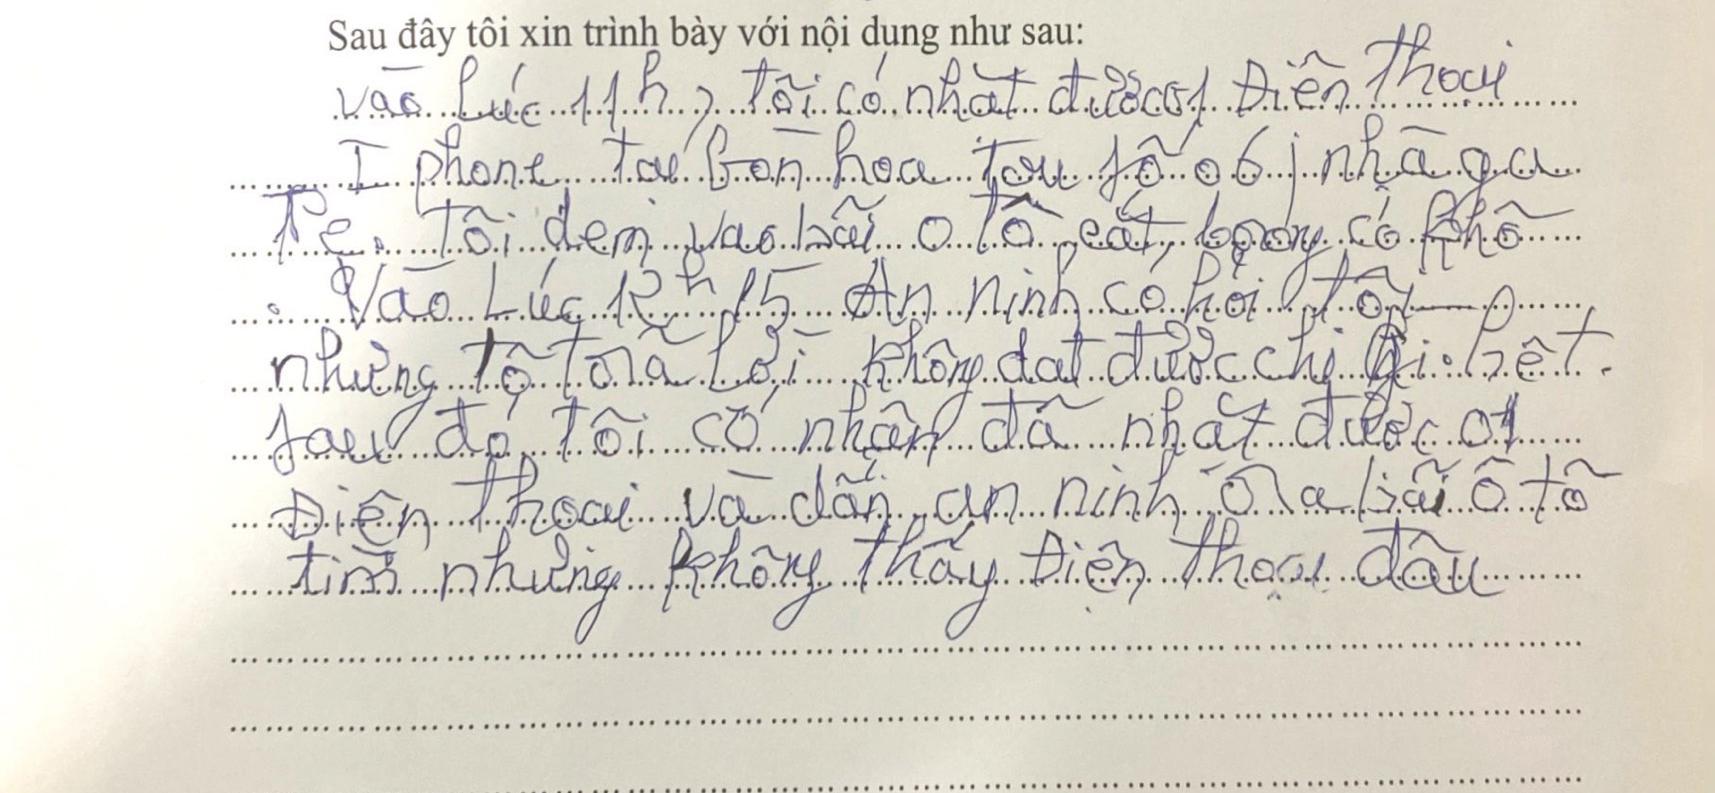 Sau đây tôi xin trình bày với nội dung như sau:
vào lúc 11h, tôi có nhặt được 01 Điện thoại
I phone tại bồn hoa tàu số 06, nhà ga
Tôi đem vào bãi ô tô cất, bọng có khô
Vào Lúc 12h 15 An ninh có hỏi tôi
nhưng tô trả lời không dat được chị gi hết.
sau đó, tôi có nhận đã nhặt được 01
Điện thoại và dẫn an ninh ra bãi ô tô
tìm nhưng không thấy Điện thoại đâu